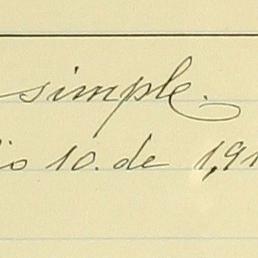 simple.
io 10. de 1,91